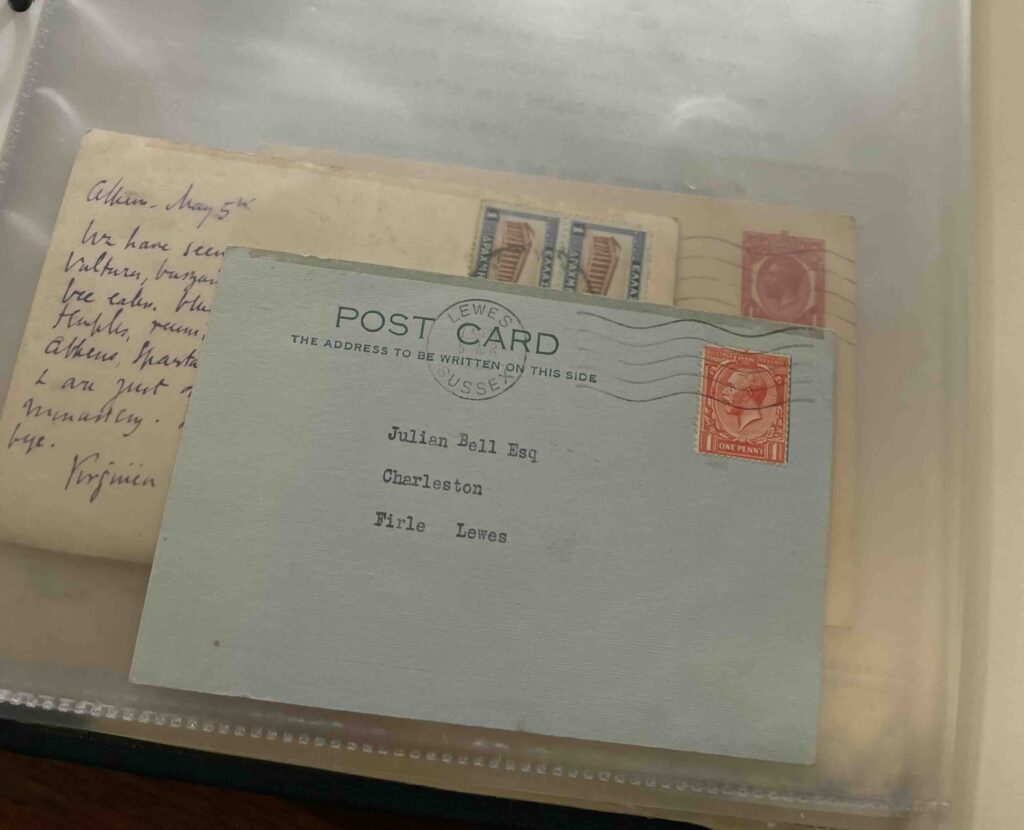 Athens - May 5th
We have seen
Vultures, buzzar
bee eater. blu
temples, ruins,
Athens, Sparta
& are just o
monastery.
bye.
Virginia
1
ΔΡΑΧΜ
ΕΛΛΑΣ
1
ΔΡΑΧΜ
ΕΛΛΑΣ
POST CARD
THE ADDRESS TO BE WRITTEN ON THIS SIDE
LEWES
SUSSEX
1 ONE PENNY 1
Julian Bell Esq
Charleston
Firle Lewes